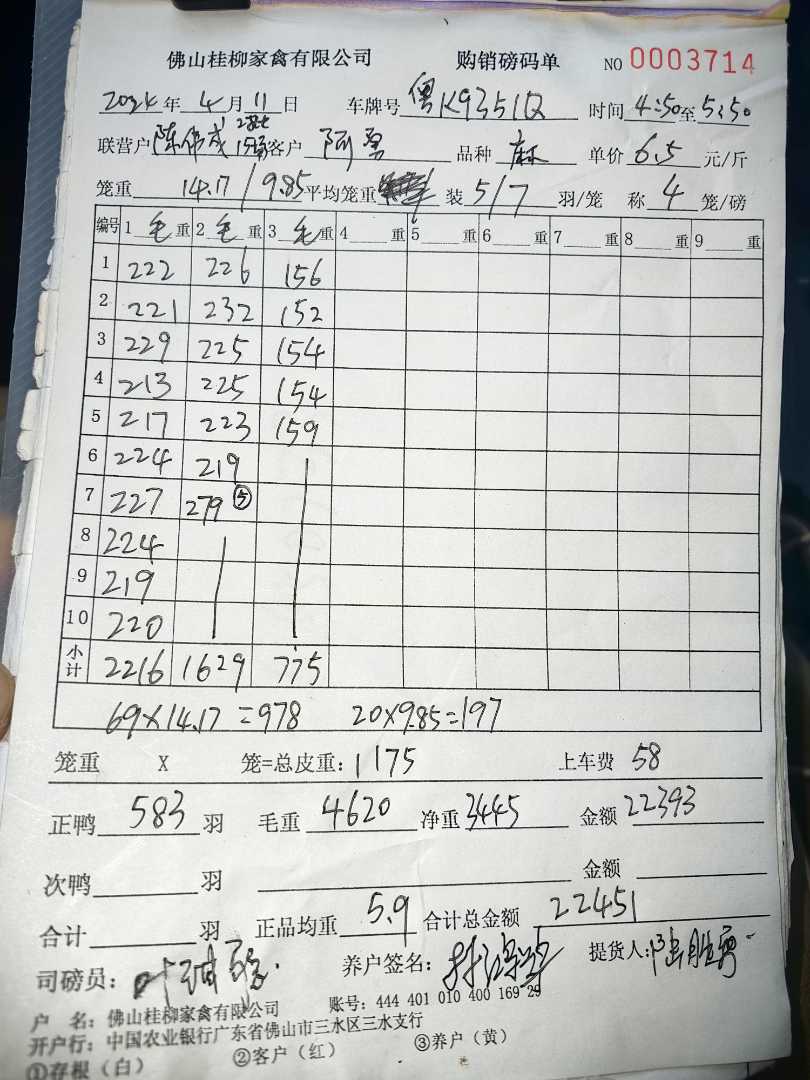 佛山桂柳家禽有限公司 购销磅码单 NO 0003714
2024年 4月 11日 车牌号 粤K9351Q 时间 4:50至5:50
联营户 陈伟成 客户 阿勇 品种 麻 单价 6.5 元/斤
笼重 14.17/9.85 平均笼重 装 5/7 羽/笼 称 4 笼/磅
编号 1 毛 重 2 毛 重 3 毛 重 4 重 5 重 6 重 7 重 8 重 9 重
1 222 226 156
2 221 232 152
3 229 225 154
4 213 225 154
5 217 223 159
6 224 219
7 227 279 ⑤
8 224
9 219
10 220
小计 2216 1629 775
69×14.17=978 20×9.85=197
笼重 X 笼=总皮重: 1175 上车费 58
正鸭 583 羽 毛重 4620 净重 3445 金额 22393
次鸭 羽 金额
合计 羽 正品均重 5.9 合计总金额 22451
司磅员: 养户签名: 提货人:
户 名: 佛山桂柳家禽有限公司 账号: 444 401 010 400 169 29
开户行: 中国农业银行广东省佛山市三水区三水支行
①存根（白） ②客户（红） ③养户（黄）